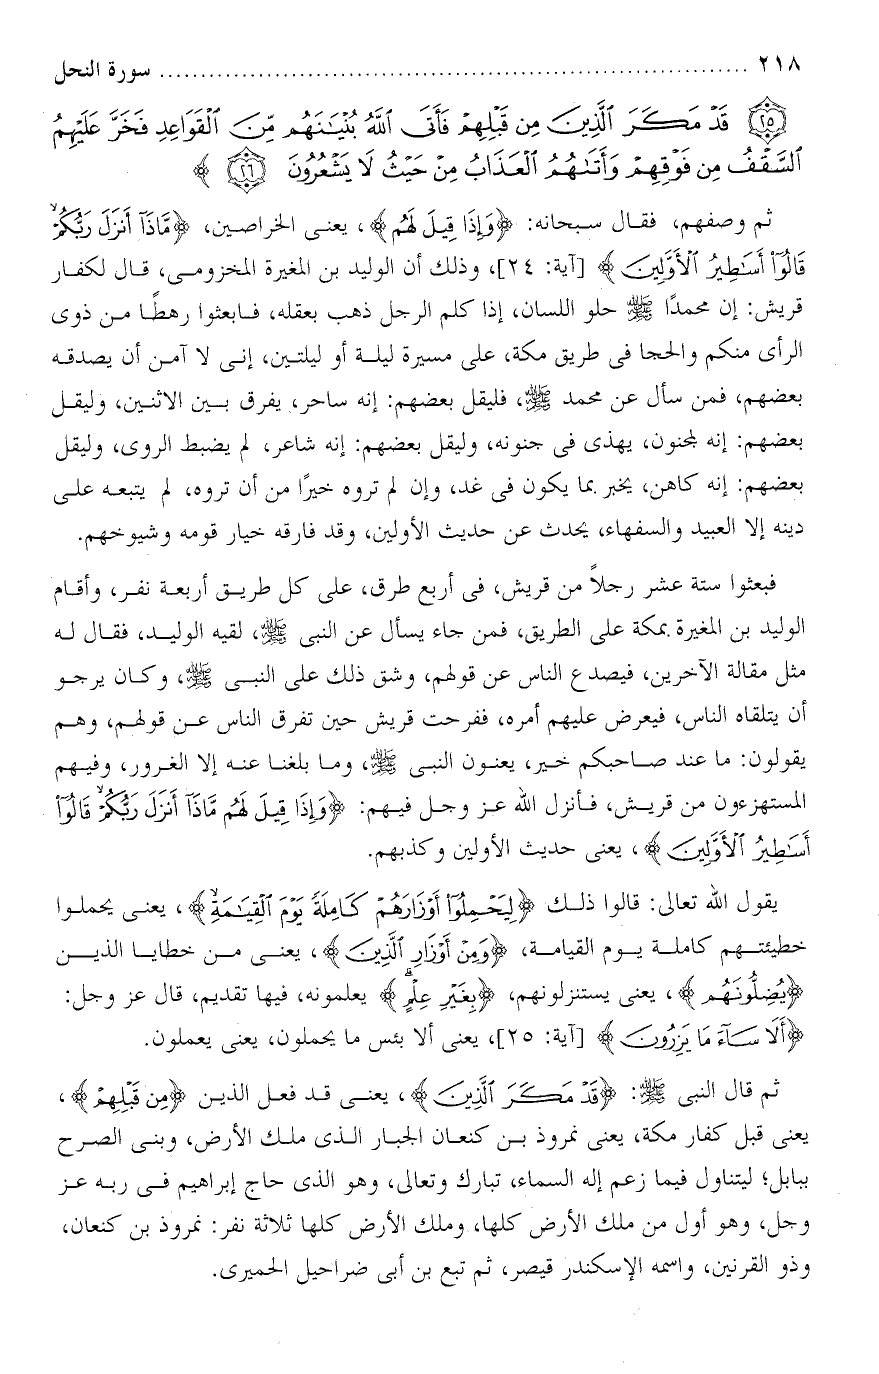 ٢١٨ ........................................................................ سورة النحل
﴿٢٥﴾ قَدْ مَكَرَ ٱلَّذِينَ مِن قَبْلِهِمْ فَأَتَى ٱللَّهُ بُنْيَـٰنَهُم مِّنَ ٱلْقَوَاعِدِ فَخَرَّ عَلَيْهِمُ
ٱلسَّقْفُ مِن فَوْقِهِمْ وَأَتَىٰهُمُ ٱلْعَذَابُ مِنْ حَيْثُ لَا يَشْعُرُونَ ﴿٢٦﴾ ﴾
ثم وصفهم، فقال سبحانه: ﴿وَإِذَا قِيلَ لَهُم﴾، يعنى الخراصين، ﴿مَّاذَآ أَنزَلَ رَبُّكُمْ ۙ
قَالُوٓا۟ أَسَـٰطِيرُ ٱلْأَوَّلِينَ﴾ [آية: ٢٤]، وذلك أن الوليد بن المغيرة المخزومى، قال لكفار
قريش: إن محمدًا ﷺ حلو اللسان، إذا كلم الرجل ذهب بعقله، فابعثوا رهطًا من ذوى
الرأى منكم والحجا فى طريق مكة، على مسيرة ليلة أو ليلتين، إنى لا آمن أن يصدقه
بعضهم، فمن سأل عن محمد ﷺ، فليقل بعضهم: إنه ساحر، يفرق بين الاثنين، وليقل
بعضهم: إنه لمجنون، يهذى فى جنونه، وليقل بعضهم: إنه شاعر، لم يضبط الروى، وليقل
بعضهم: إنه كاهن، يخبر بما يكون فى غد، وإن لم تروه خيرًا من أن تروه، لم يتبعه على
دينه إلا العبيد والسفهاء، يحدث عن حديث الأولين، وقد فارقه خيار قومه وشيوخهم.
فبعثوا ستة عشر رجلاً من قريش، فى أربع طرق، على كل طريق أربعة نفر، وأقام
الوليد بن المغيرة بمكة على الطريق، فمن جاء يسأل عن النبى ﷺ، لقيه الوليد، فقال له
مثل مقالة الآخرين، فيصدع الناس عن قولهم، وشق ذلك على النبى ﷺ، وكان يرجو
أن يتلقاه الناس، فيعرض عليهم أمره، ففرحت قريش حين تفرق الناس عن قولهم، وهم
يقولون: ما عند صاحبكم خير، يعنون النبى ﷺ، وما بلغنا عنه إلا الغرور، وفيهم
المستهزءون من قريش، فأنزل الله عز وجل فيهم: ﴿وَإِذَا قِيلَ لَهُم مَّاذَآ أَنزَلَ رَبُّكُمْ ۙ قَالُوٓا۟
أَسَـٰطِيرُ ٱلْأَوَّلِينَ﴾، يعنى حديث الأولين وكذبهم.
يقول الله تعالى: قالوا ذلك ﴿لِيَحْمِلُوٓا۟ أَوْزَارَهُمْ كَامِلَةً يَوْمَ ٱلْقِيَـٰمَةِ ۙ﴾، يعنى يحملوا
خطيئتهم كاملة يوم القيامة، ﴿وَمِنْ أَوْزَارِ ٱلَّذِينَ﴾، يعنى من خطايا الذين
﴿يُضِلُّونَهُم﴾، يعنى يستنزلونهم، ﴿بِغَيْرِ عِلْمٍ ۗ﴾ يعلمونه، فيها تقديم، قال عز وجل:
﴿أَلَا سَآءَ مَا يَزِرُونَ﴾ [آية: ٢٥]، يعنى ألا بئس ما يحملون، يعنى يعملون.
ثم قال النبى ﷺ: ﴿قَدْ مَكَرَ ٱلَّذِينَ﴾، يعنى قد فعل الذين ﴿مِن قَبْلِهِمْ﴾،
يعنى قبل كفار مكة، يعنى نمروذ بن كنعان الجبار الذى ملك الأرض، وبنى الصرح
ببابل؛ ليتناول فيما زعم إله السماء، تبارك وتعالى، وهو الذى حاج إبراهيم فى ربه عز
وجل، وهو أول من ملك الأرض كلها، وملك الأرض كلها ثلاثة نفر: نمروذ بن كنعان،
وذو القرنين، واسمه الإسكندر قيصر، ثم تبع بن أبى ضراحيل الحميرى.